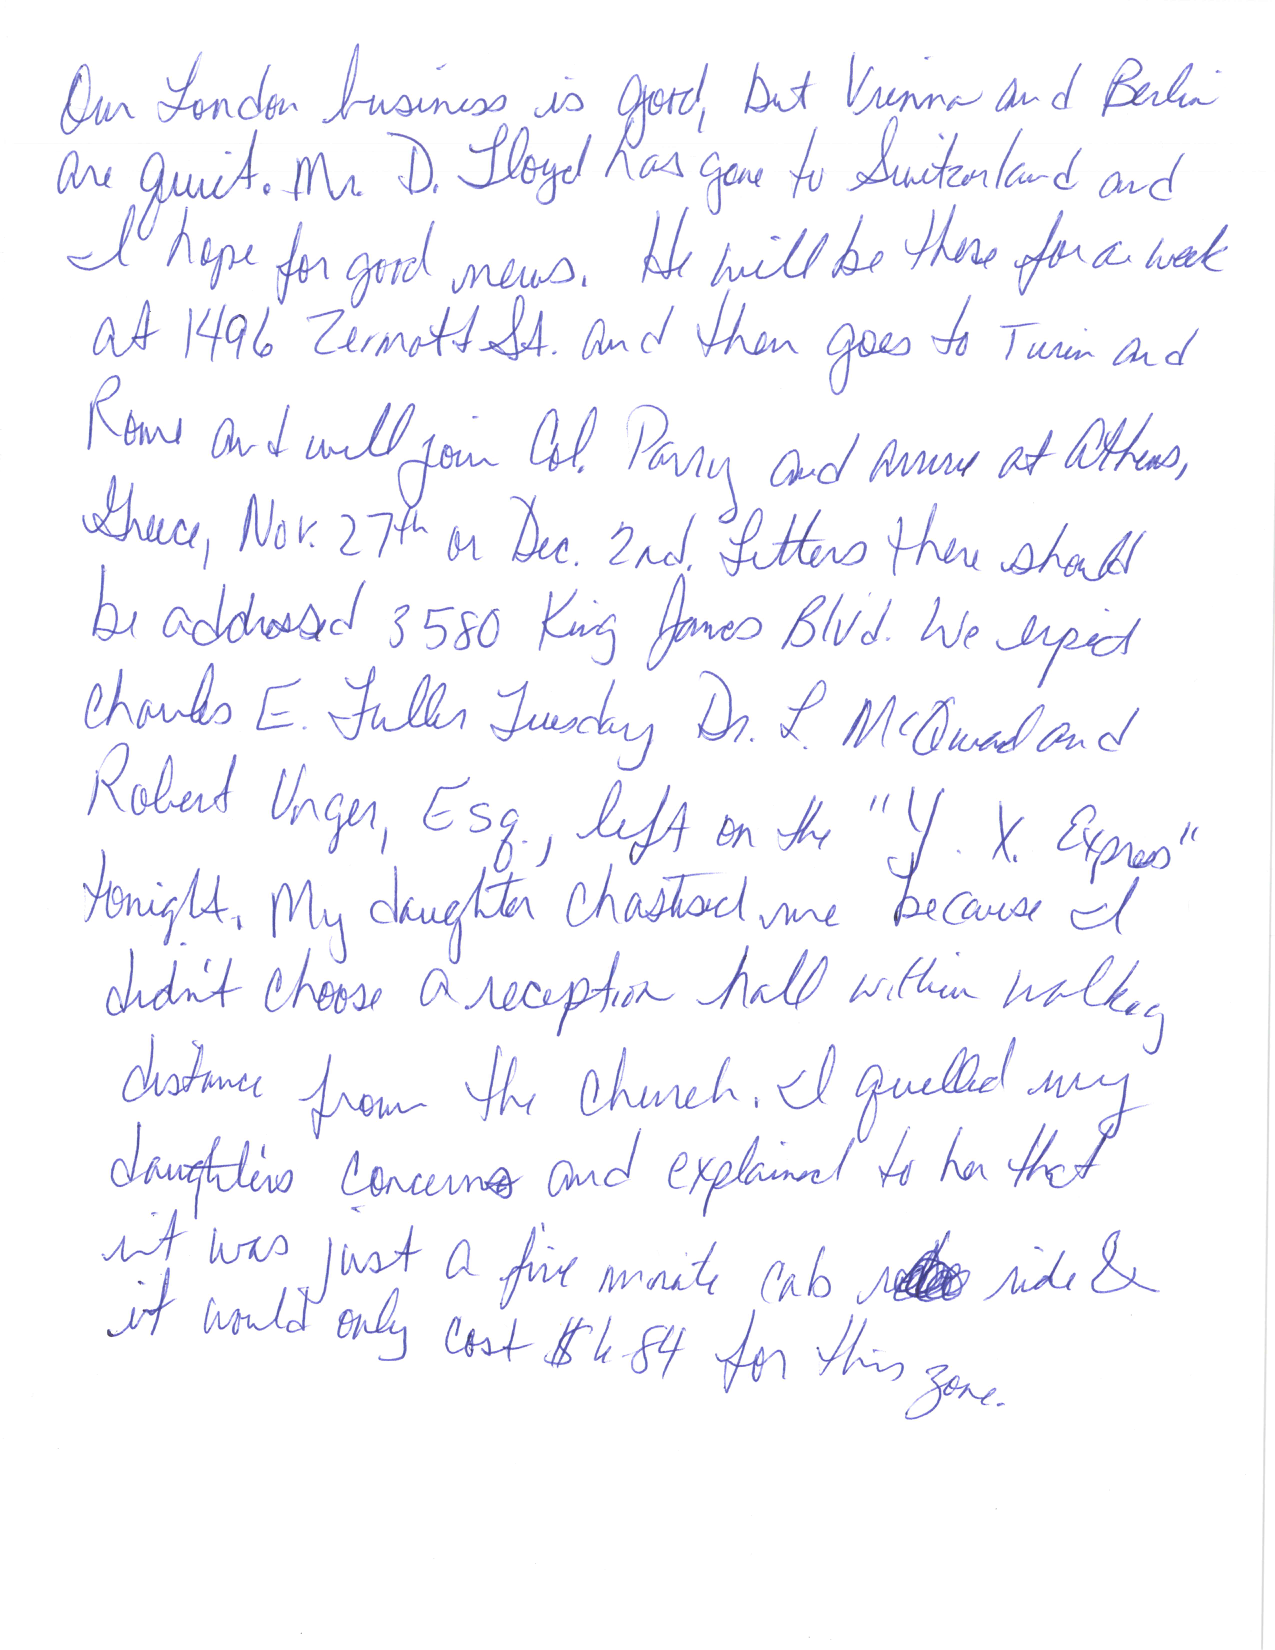 Our London business is good, but Vienna and Berlin
are quiet. Mr. D. Lloyd has gone to Switzerland and
I hope for good news. He will be there for a week
at 1496 Zermott St. and then goes to Turin and
Rome and will join Col. Parry and arrive at Athens,
Greece, Nov. 27th or Dec. 2nd. Letters there should
be addressed 3580 King James Blvd. We expect
Charles E. Fuller Tuesday Dr. L. McQuaid and
Robert Unger, Esq., left on the "Y. X. Express"
tonight. My daughter chastised me because I
didn't choose a reception hall within walking
distance from the church. I quelled my
daughter's concerns and explained to her that
it was just a five minute cab ride &
it would only cost $6.84 for this zone.